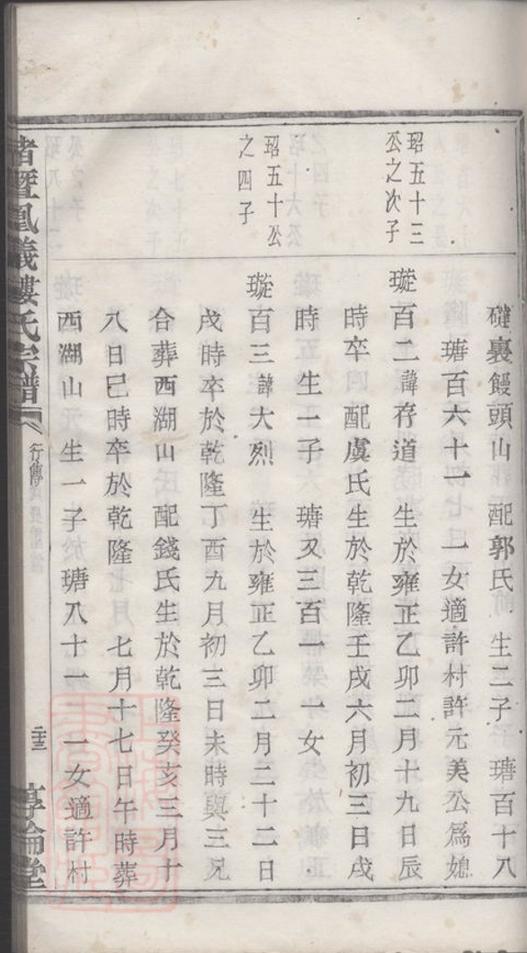 碰裏饅頭山　配郭氏　生二子　瑭百十八
瑭百六十一　一女適許村許元美公爲媳
珆五十三
公之次子
璇百二諱存道　生於雍正乙卯二月十九日辰
時卒　配虞氏生於乾隆壬戌六月初三日戌
時　生一子　瑭又三百一　一女
珆五十公
之四子
璇百三諱大烈　生於雍正乙卯二月二十二日
戌時卒於乾隆丁酉九月初三日未時與三兄
合葬西湖山　配錢氏生於乾隆癸亥三月十
八日巳時卒於乾隆　七月十七日午時葬
西湖山　生一子　瑭八十一　一女適許村
諸暨鳳儀樓氏宗譜
行傳
二十三
享倫堂